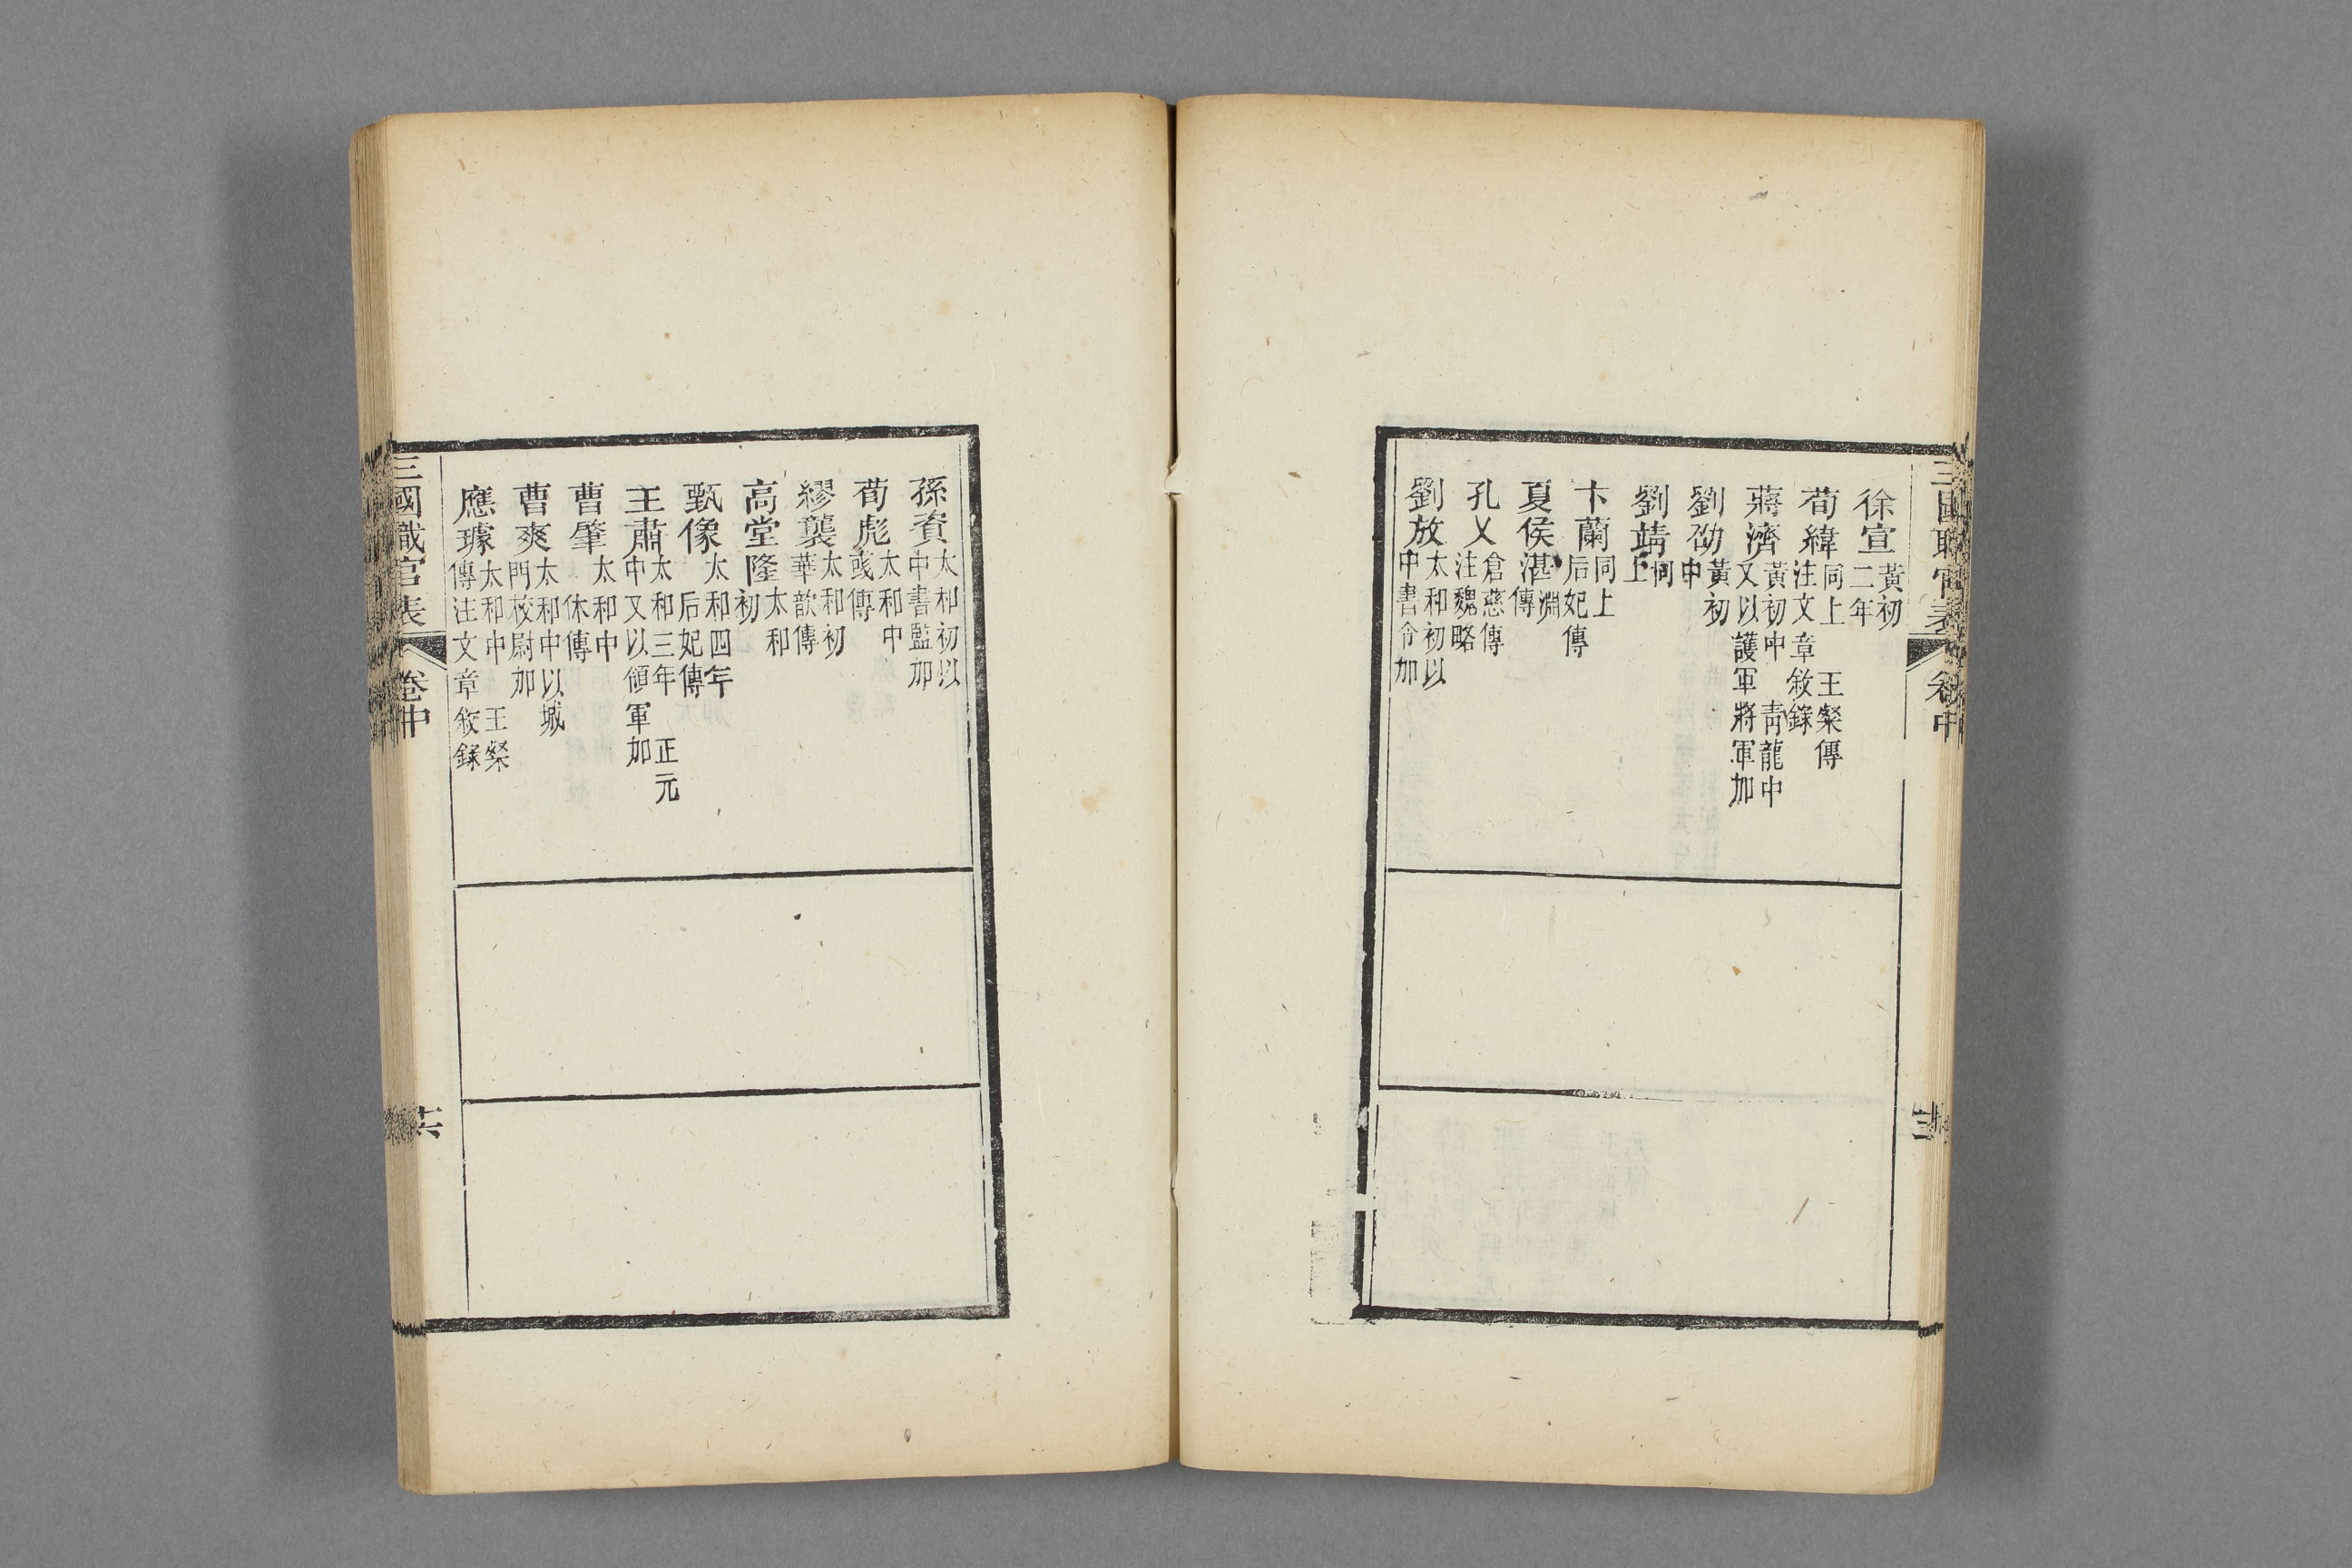 三國職官表 卷中
徐宣黃初二年
荀緯同上 王粲傳注文章敘錄
蔣濟黃初中 青龍中又以護軍將軍加
劉劭黃初中
劉靖同上
卞蘭同上后妃傳
夏侯湛淵傳
孔乂倉慈傳注魏略
劉放太和初以中書令加
孫資太和初以中書監加
荀彪太和中彧傳
繆襲太和初華歆傳
高堂隆太和初
甄像太和四年后妃傳
王肅太和三年 正元中又以領軍加
曹肇太和中休傳
曹爽太和中以城門校尉加
應璩太和中 王粲傳注文章敘錄
三國職官表 卷中 十六